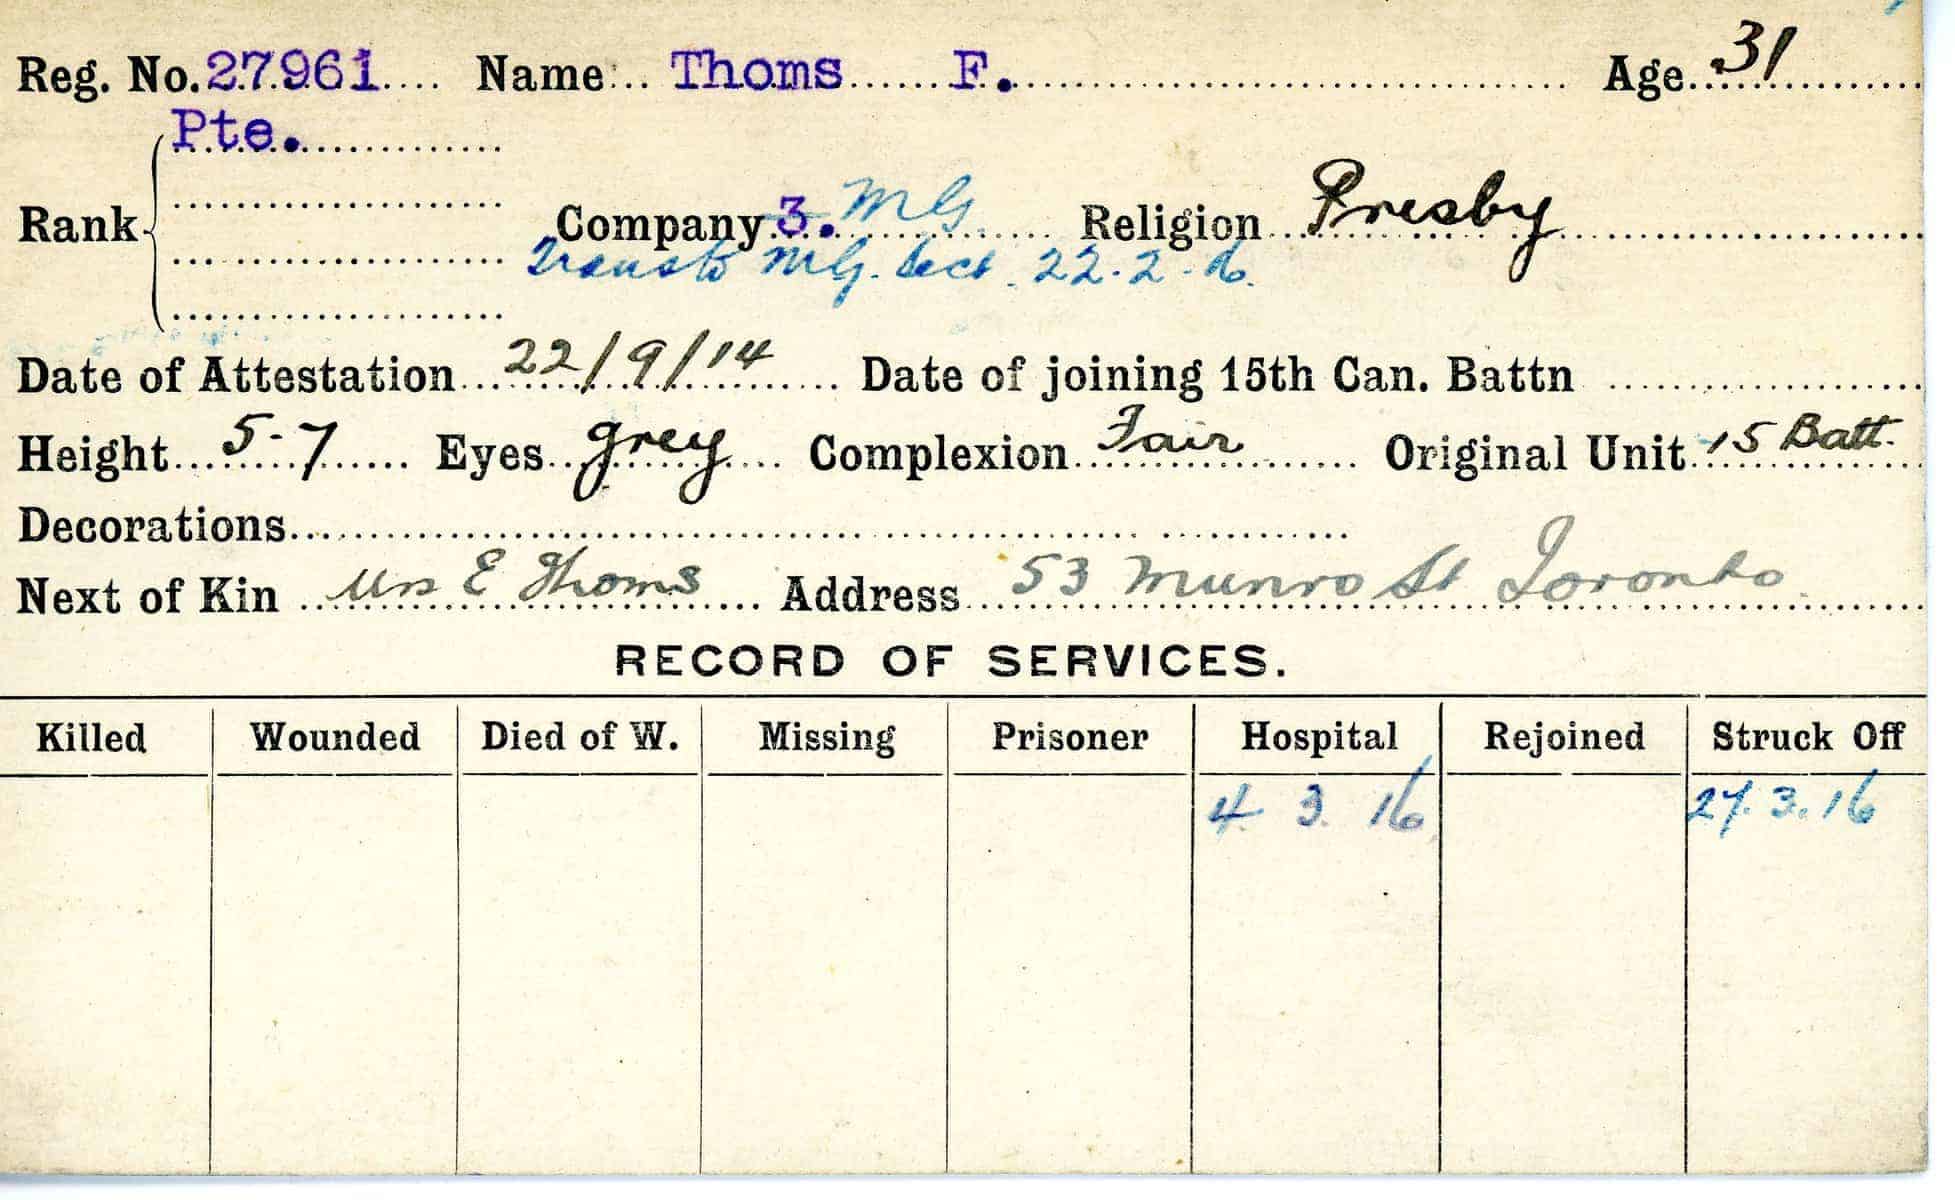 Reg. No. 27961 Name Thoms F. Age 31
Pte.
Rank Company 3. MG. Religion Presby
Trans to MG. Sect. 22.2.16.
Date of Attestation 22/9/14 Date of joining 15th Can. Battn
Height 5-7 Eyes grey Complexion Fair Original Unit 15 Batt.
Decorations
Next of Kin Mrs E Thoms Address 53 Munro St Toronto
RECORD OF SERVICES.
Killed Wounded Died of W. Missing Prisoner Hospital Rejoined Struck Off
4. 3. 16 27.3.16